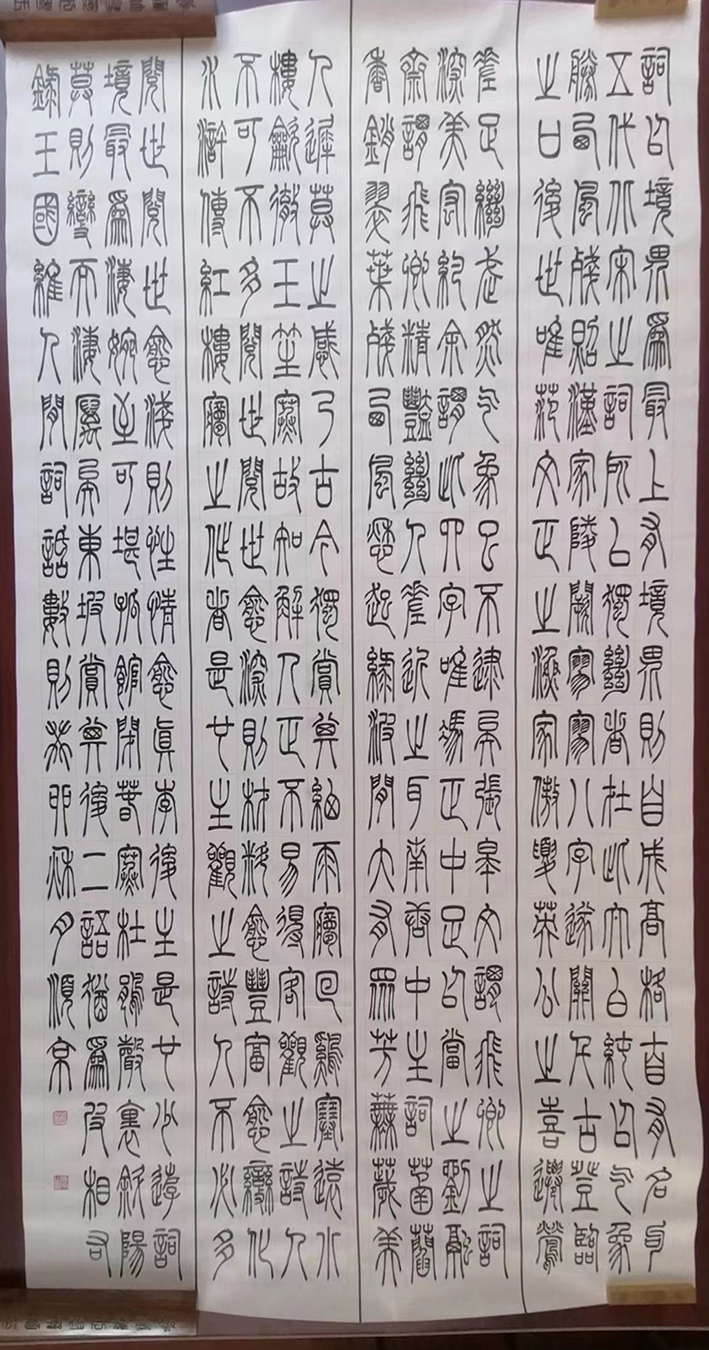 詞以境界爲最上有境界則自成高格自有名句
五代北宋之詞所以獨絕者在此太白純以气象
勝西風殘照漢家陵闕寥寥八字遂關千古登臨
之口後世唯范文正之漁家傲夏英公之喜遷鶯
差足繼武然气象已不逮矣張皋文謂飛卿之詞
深美閎約余謂此四字唯馮正中足以當之劉融
齋謂飛卿精豔絕人差近之耳南唐中主詞菡萏
香銷翠葉殘西風愁起綠波間大有衆芳蕪薉美
人遲莫之感乃古今獨賞其細雨夢回雞塞遠小
樓龡徹玉笙寒故知解人正不易得客觀之詩人
不可不多閱世閱世愈深則材料愈豐富愈變化
水滸傳紅樓夢之作者是也主觀之詩人不必多
閱世閱世愈淺則性情愈真李後主是也少游詞
境最爲淒婉至可堪孤館閉春寒杜鵑聲裏斜陽
莫則變而淒厲矣東坡賞其後二語猶爲皮相右
錄王國維人間詞話數則癸卯秋月順京